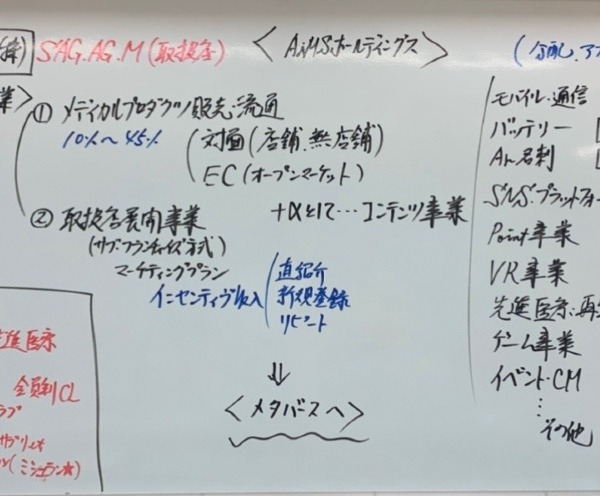 SAG.AG.M(取扱店)
<AiMSホールディングス>
① メディカルプロダクツ販売・流通
10%〜45%
対面(店舗、無店舗)
EC(オープンマーケット)
② 取扱店展開事業
(サブ・フランチャイズ方式)
マーケティングプラン
インセンティブ収入
直紹介
新規登録
リピート
+αとして…コンテンツ事業
⇓
<メタバースへ>
モバイル・通信
バッテリー
AR名刺
SNS.プラットフォ
Point事業
VR事業
先進医療・再
ゲーム事業
イベント・CM
⋮
その他
業>
進医療
会員制CL
(ミシュラン☆)